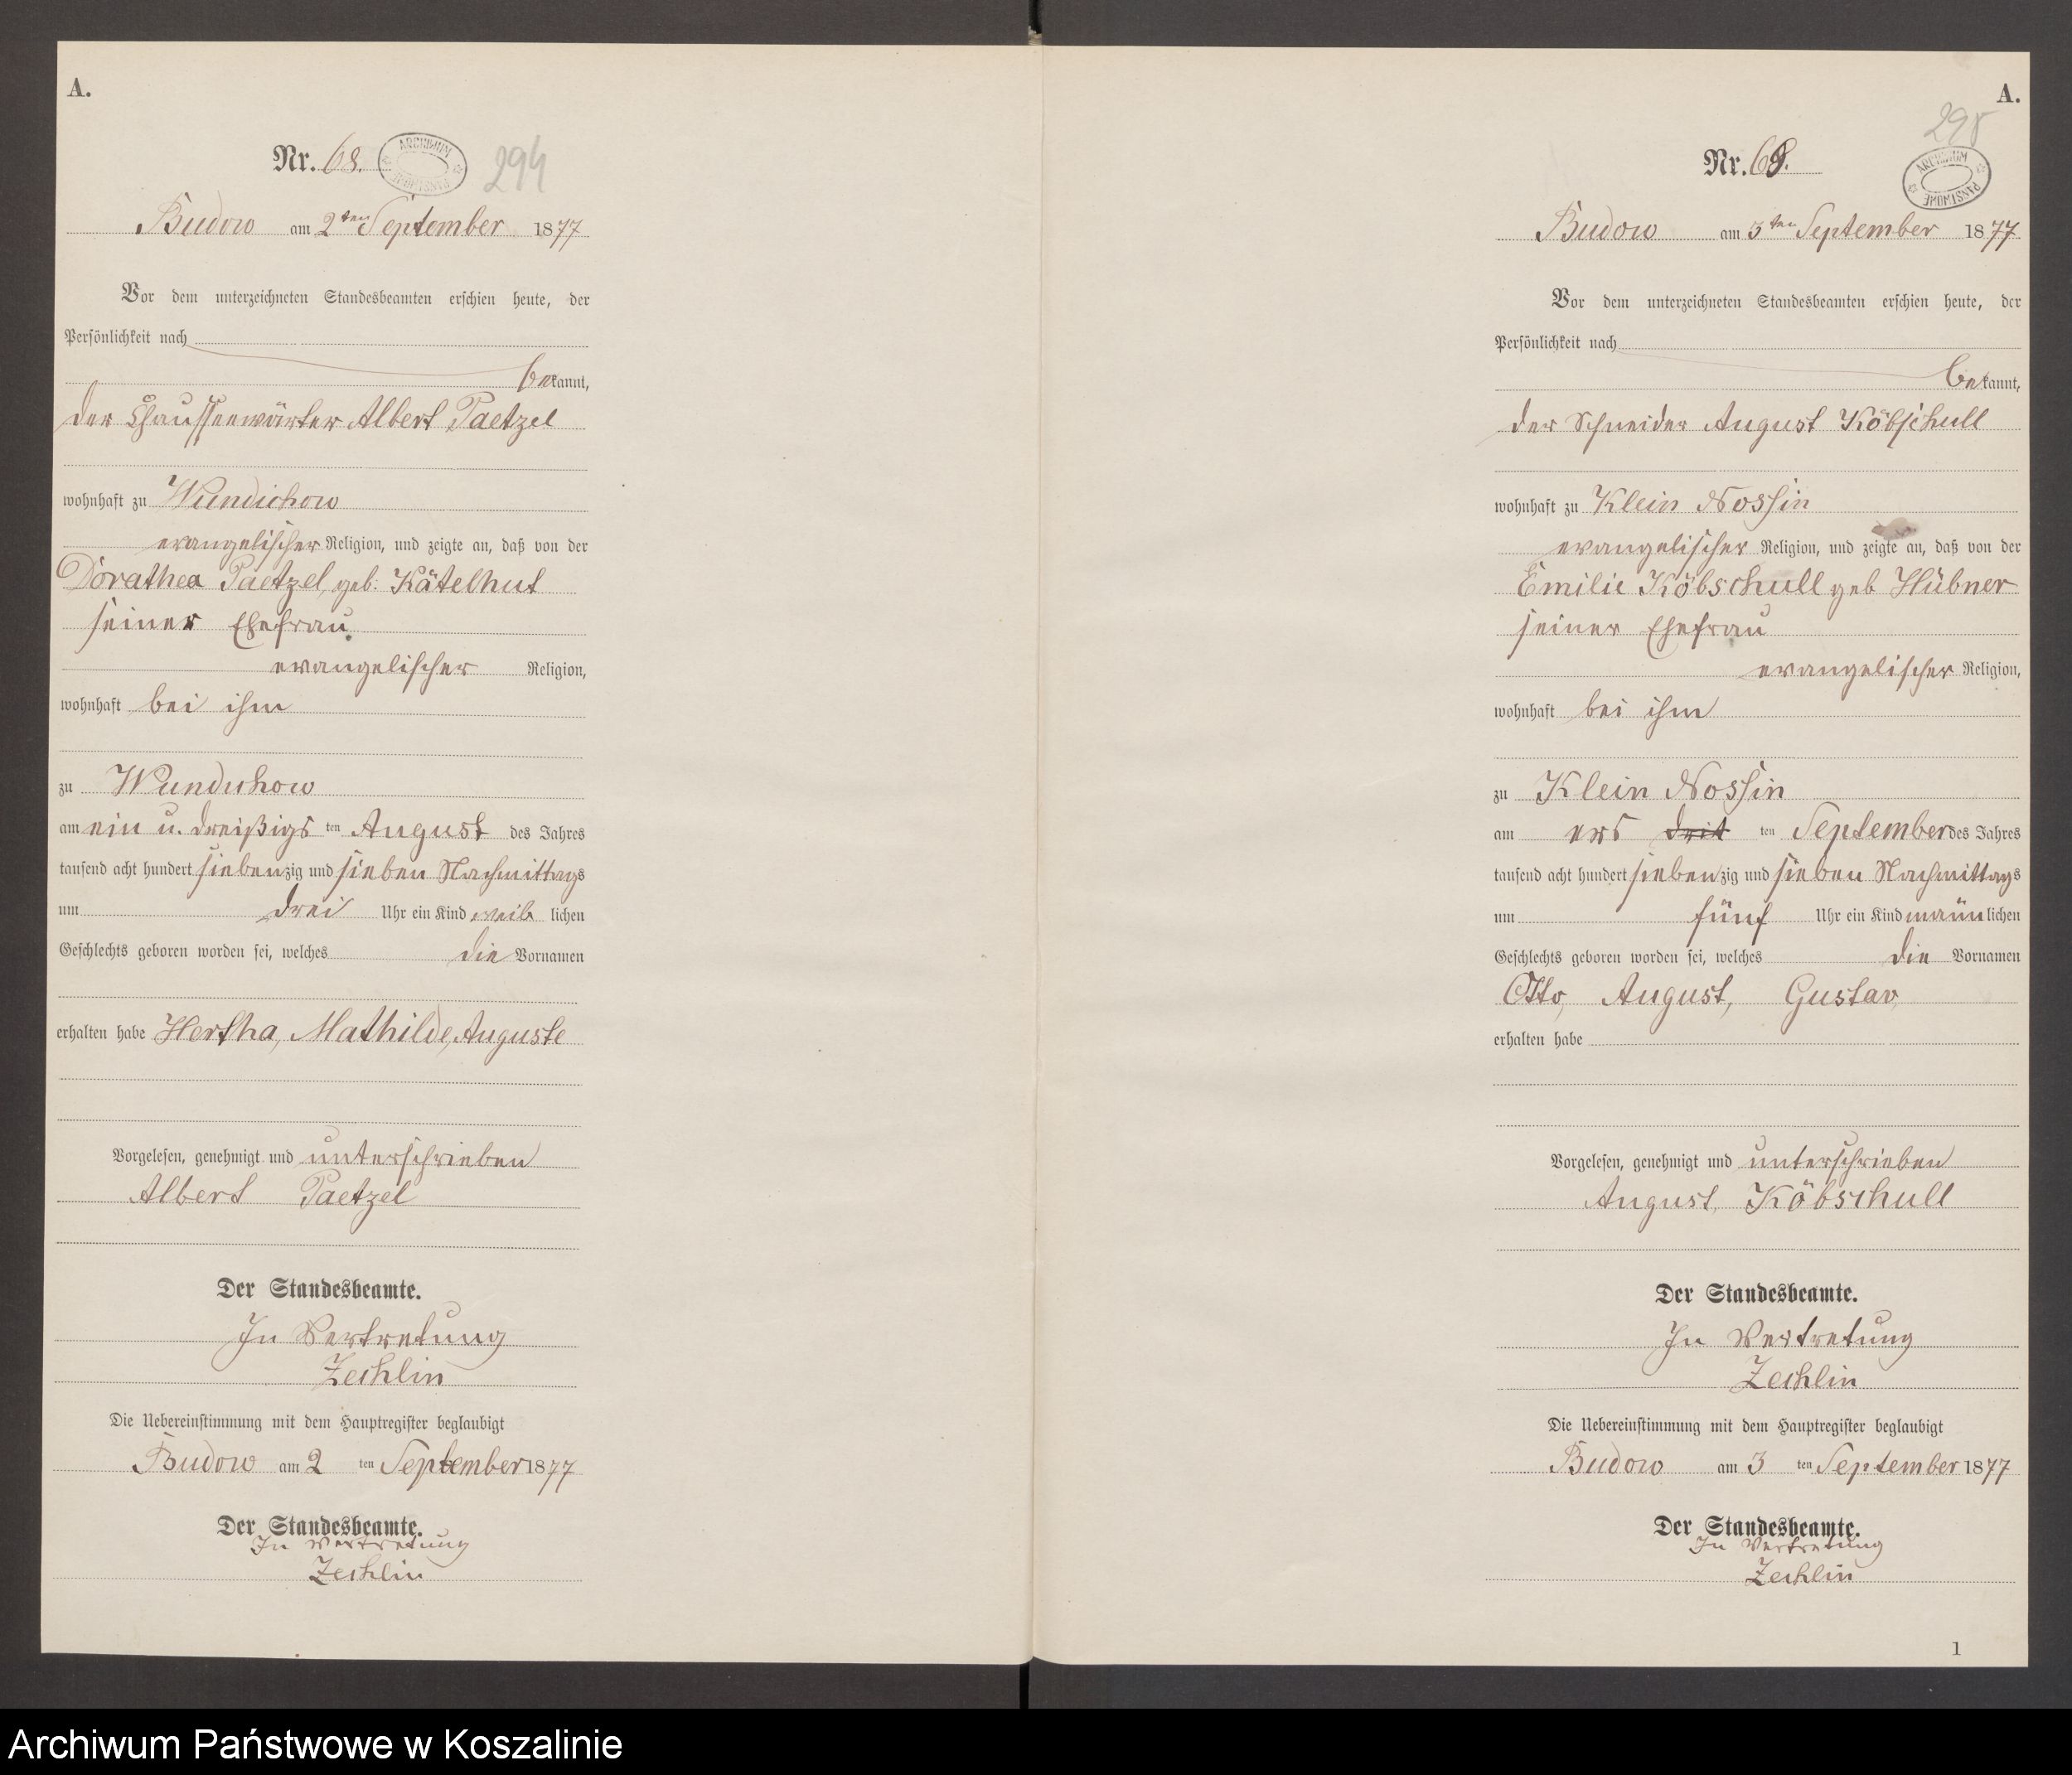 A.
Nr. 68.
ARCHIWUM PAŃSTWOWE
294
Budow am 2ten September 1877
Vor dem unterzeichneten Standesbeamten erschien heute, der
Persönlichkeit nach
bekannt,
der Chausseewärter Albert Paetzel
wohnhaft zu Wundichow
evangelischer Religion, und zeigte an, daß von der
Dorathea Paetzel, geb: Kätelhut
seiner Ehefrau
evangelischer Religion,
wohnhaft bei ihm
zu Wundichow
am ein u. dreißigs ten August des Jahres
tausend acht hundert siebenzig und sieben Nachmittags
um drei Uhr ein Kind weib lichen
Geschlechts geboren worden sei, welches die Vornamen
erhalten habe Hertha, Mathilde, Auguste
Vorgelesen, genehmigt und unterschrieben
Albert Paetzel
Der Standesbeamte.
In Vertretung
Zechlin
Die Uebereinstimmung mit dem Hauptregister beglaubigt
Budow am 2 ten September 1877
Der Standesbeamte.
In Vertretung
Zechlin
A.
295
Nr. 69.
ARCHIWUM PAŃSTWOWE
Budow am 3ten September 1877
Vor dem unterzeichneten Standesbeamten erschien heute, der
Persönlichkeit nach
bekannt,
der Schneider August Köbschull
wohnhaft zu Klein Nossin
evangelischer Religion, und zeigte an, daß von der
Emilie Köbschull geb Hübner
seiner Ehefrau
evangelischer Religion,
wohnhaft bei ihm
zu Klein Nossin
am ers drit ten September des Jahres
tausend acht hundert siebenzig und sieben Nachmittags
um fünf Uhr ein Kind männlichen
Geschlechts geboren worden sei, welches die Vornamen
Otto, August, Gustav
erhalten habe
Vorgelesen, genehmigt und unterschrieben
August Köbschull
Der Standesbeamte.
In Vertretung
Zechlin
Die Uebereinstimmung mit dem Hauptregister beglaubigt
Budow am 3 ten September 1877
Der Standesbeamte.
In Vertretung
Zechlin
1
Archiwum Państwowe w Koszalinie